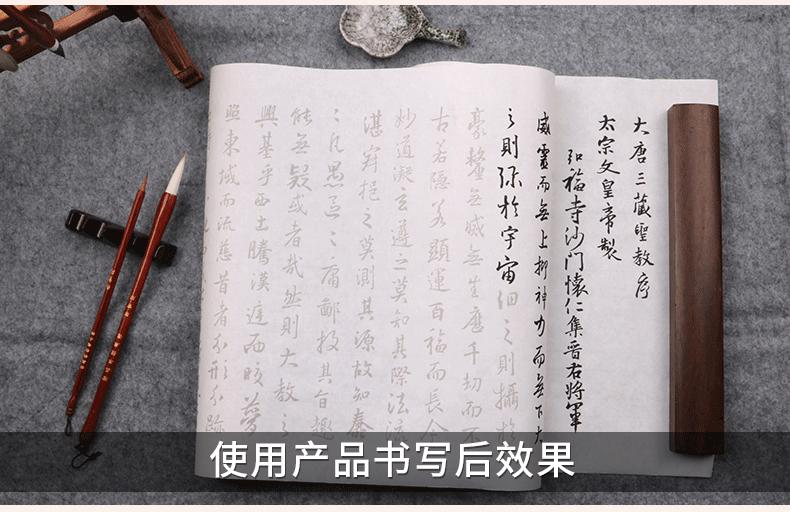 大唐三藏聖教序
太宗文皇帝製
弘福寺沙門懷仁集晉右將軍
威靈而無上抑神力而無下大
之則弥於宇宙細之則攝於
豪釐無滅無生歷千劫而不
古若隱若顯運百福而長今
妙道凝玄遵之莫知其際法流
湛寂挹之莫測其源故知蠢
〻凡愚區〻庸鄙投其旨趣
能無疑或者哉然則大教之
興基乎西土騰漢庭而皎夢
照東域而流慈昔者分形分跡
使用产品书写后效果